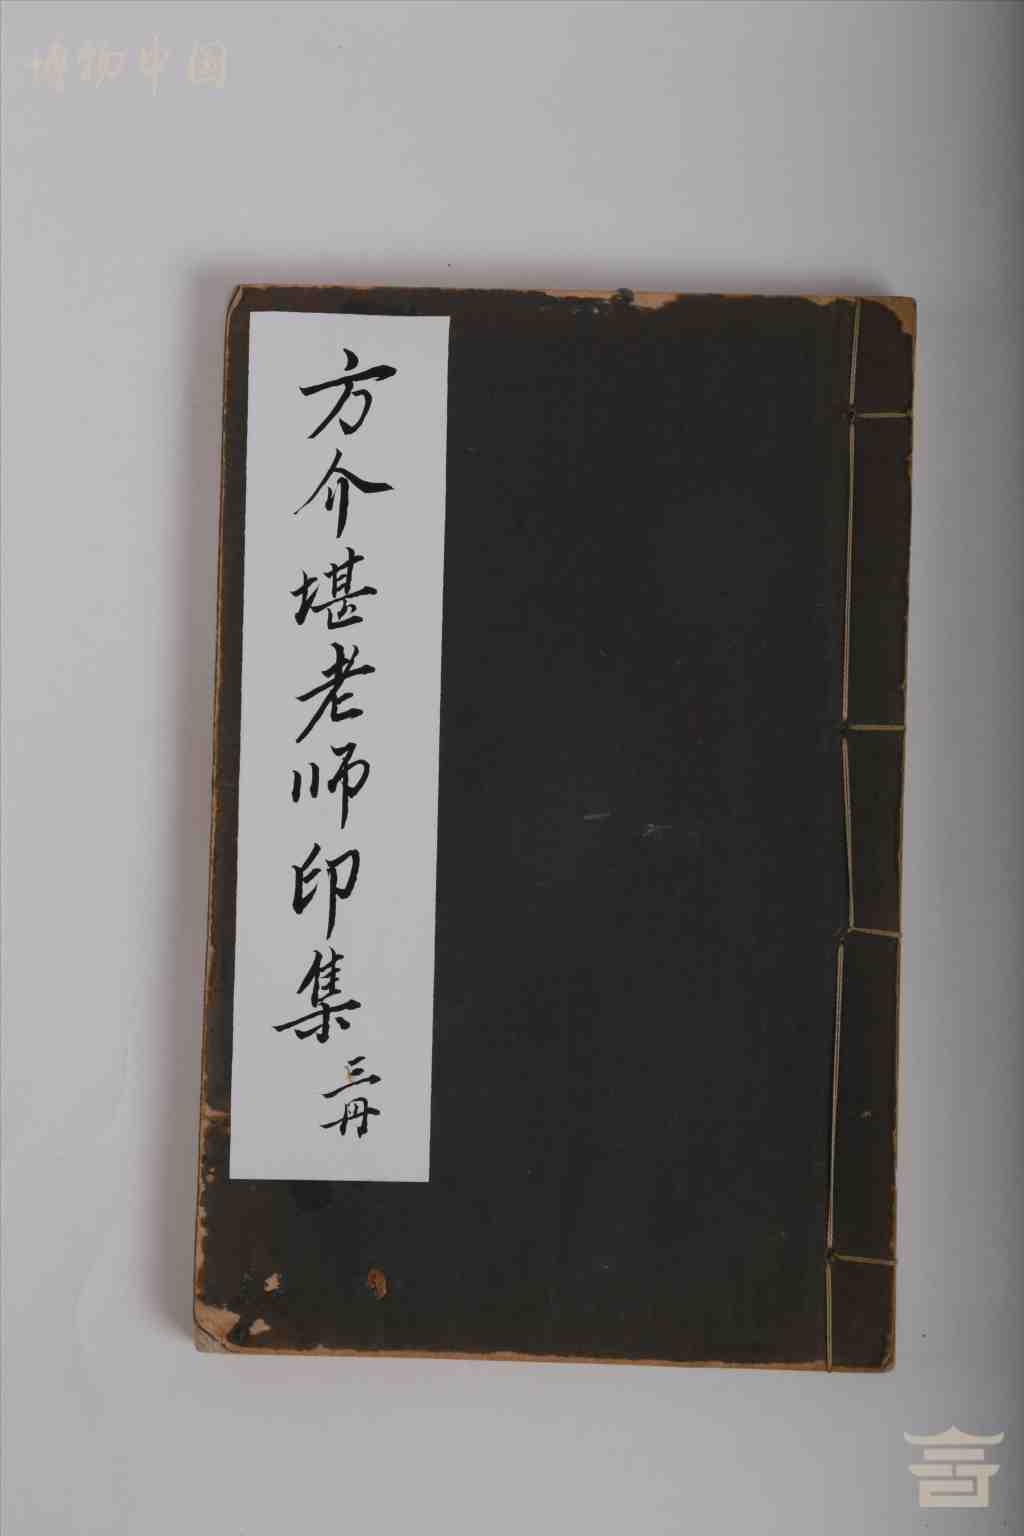 博物中国
方介堪老师印集
三册